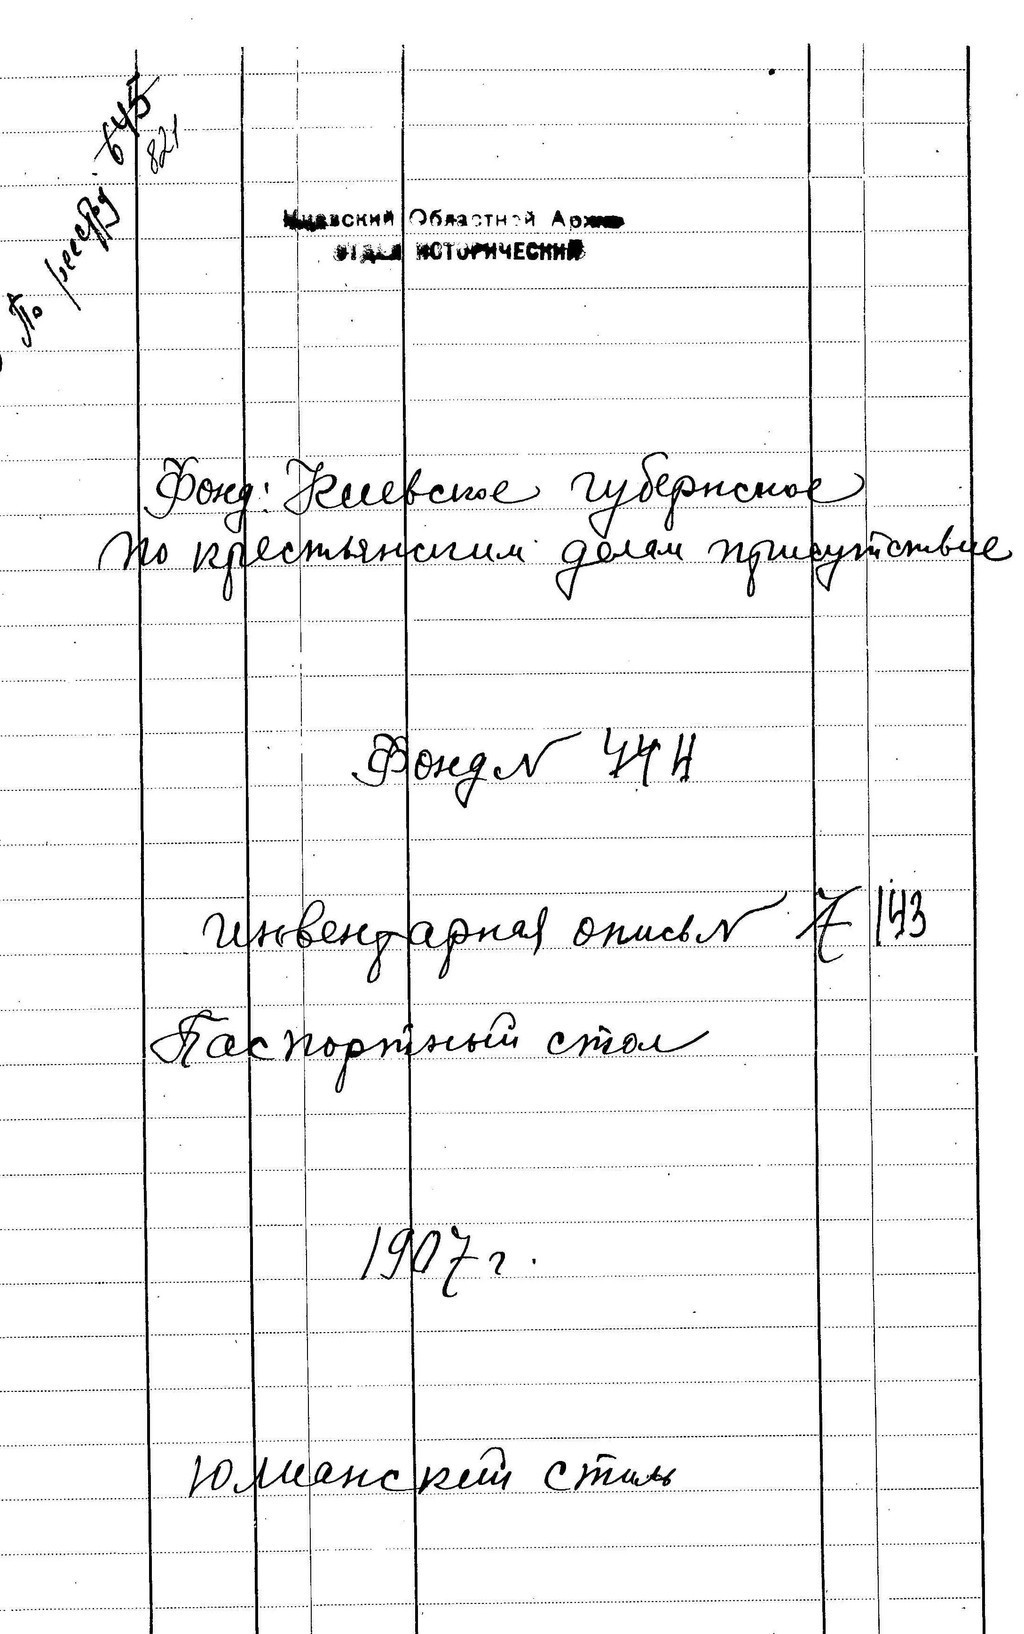 По реестру 645
821
Киевский Областной Архив
ОТДЕЛ ИСТОРИЧЕСКИЙ
Фонд: Киевское губернское
по крестьянским делам присутствие
Фонд N
инвентарная опись N 7 143
Паспортный стол
1907 г.
Юлианский стиль